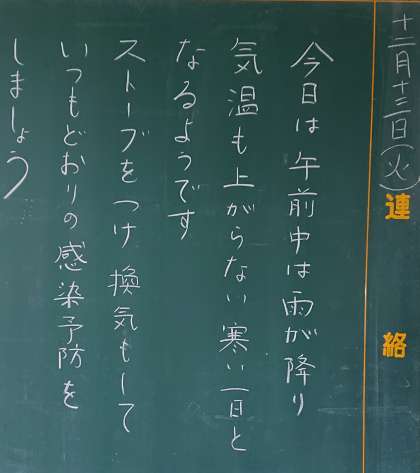 十二月十三日(火)
連絡
今日は午前中は雨が降り
気温も上がらない寒い一日と
なるようです
ストーブをつけ換気もして
いつもどおりの感染予防を
しましょう